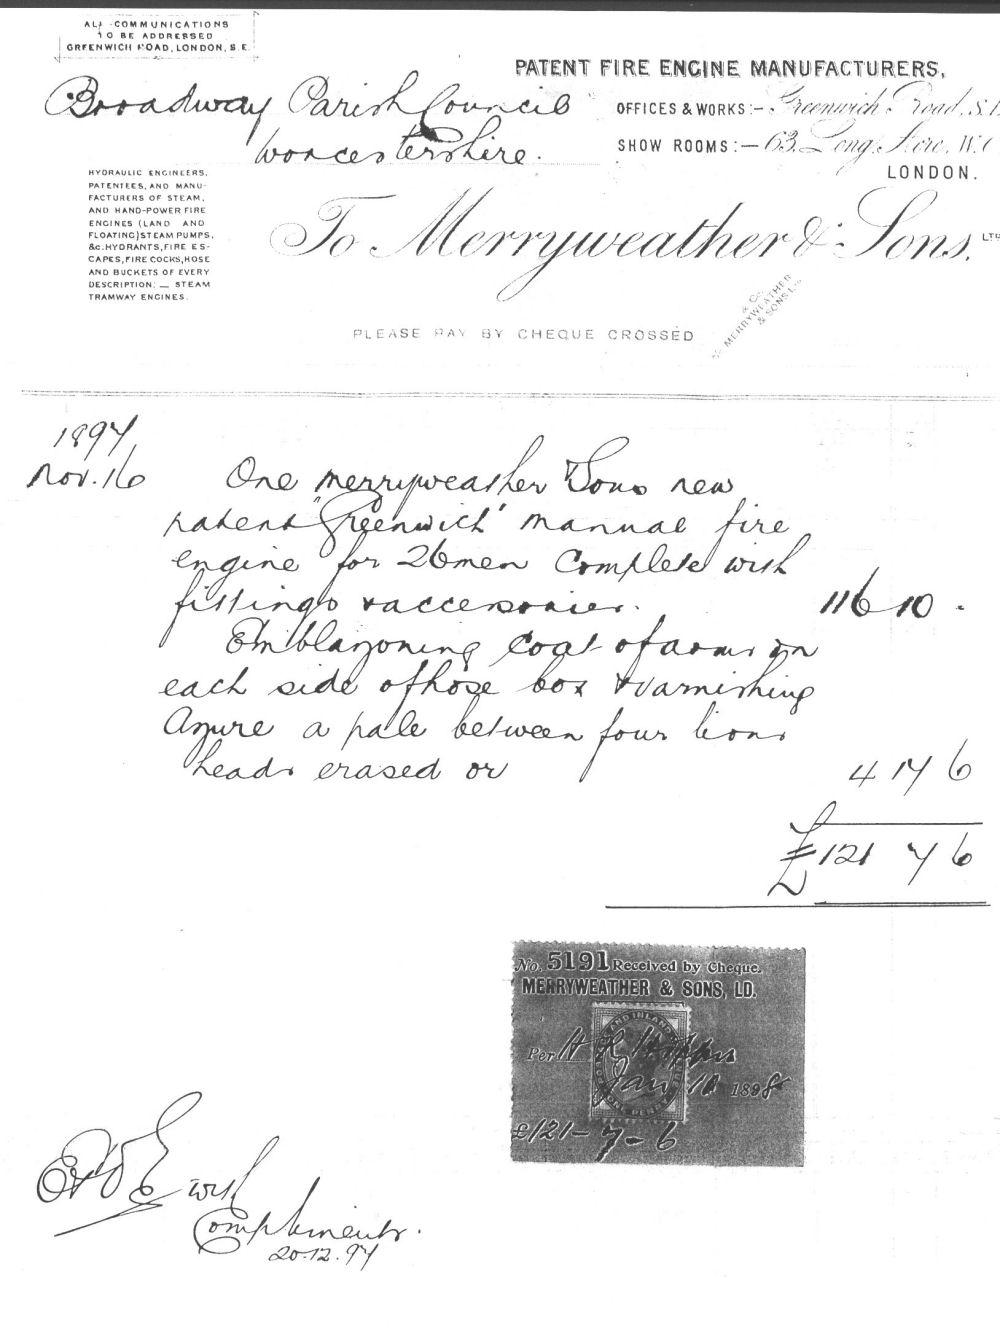 ALL COMMUNICATIONS
TO BE ADDRESSED
GREENWICH ROAD, LONDON, S.E.
PATENT FIRE ENGINE MANUFACTURERS,
Broadway Parish Council
Worcestershire.
OFFICES & WORKS:- Greenwich Road, S.E
SHOW ROOMS:- 63, Long Acre, W.C
LONDON.
HYDRAULIC ENGINEERS,
PATENTEES, AND MANU-
FACTURERS OF STEAM,
AND HAND-POWER FIRE
ENGINES (LAND AND
FLOATING) STEAM PUMPS,
&c. HYDRANTS, FIRE ES-
CAPES, FIRE COCKS, HOSE
AND BUCKETS OF EVERY
DESCRIPTION: _ STEAM
TRAMWAY ENGINES.
To Merryweather & Sons, LTD
PLEASE PAY BY CHEQUE CROSSED
& Co.
MERRYWEATHER
& SONS LTD
1897
Nov. 16 One Merryweather & Sons new
patent "Greenwich" manual fire
engine for 26 men Complete with
fittings & accessories. 116 10 -
Emblazoning Coat of arms on
each side of hose box & varnishing
Azure a pale between four lions
heads erased or 4 17 6
£121 7 6
No. 5191 Received by Cheque.
MERRYWEATHER & SONS, LD.
AND INLAND
Per H
Jan 10 1898
ONE PENNY
£121-7-6
with
Compliments.
20.12.97